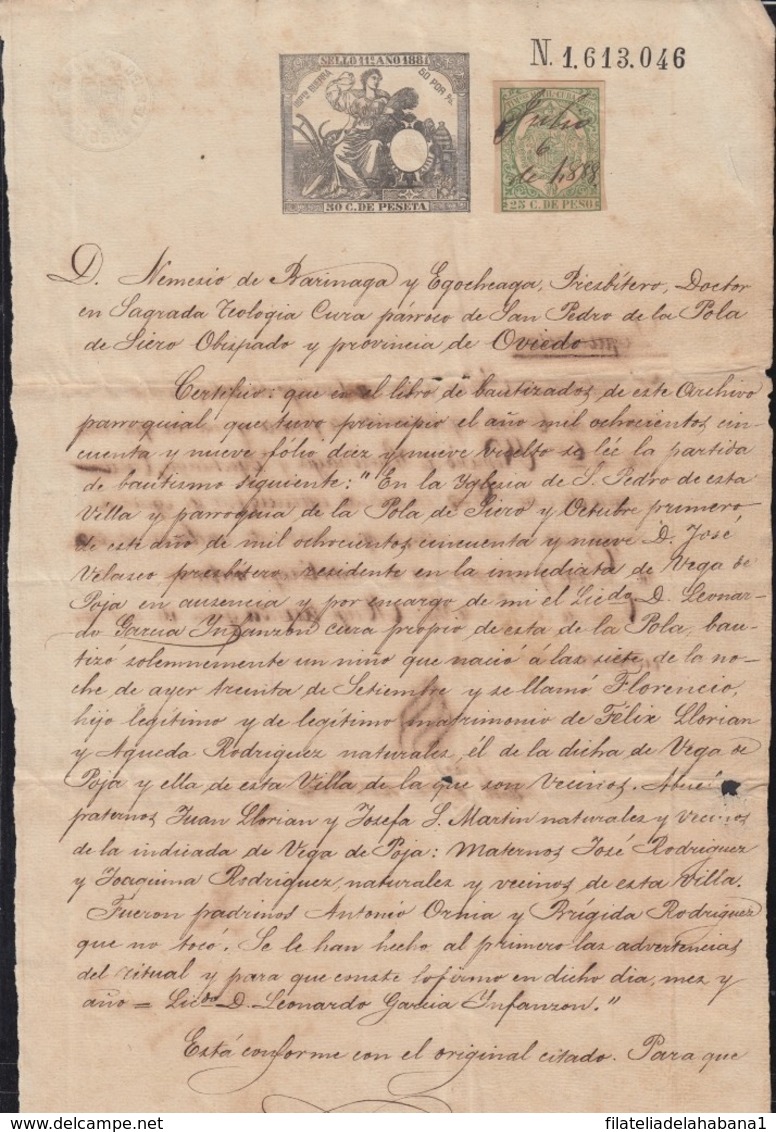 N. 1.613.046
SELLO 11º AÑO 1881
IMPtO GUERRA 50 POR %
50 C. DE PESETA
Julio
6
de 1,888
25 C. DE PESO
D. Nemesio de Barinaga y Egocheaga, Presbítero, Doctor
en Sagrada Teologia Cura párroco de San Pedro de la Pola
de Siero Obispado y provincia de Oviedo
Certifico: que en el libro de bautizados de este Archivo
parroquial que tuvo principio el año mil ochocientos cin-
cuenta y nueve fólio diez y nueve vuelto se leé la partida
de bautismo siguiente: "En la Yglesia de S. Pedro de esta
Villa y parroquia de la Pola de Siero y Octubre primero
de este año de mil ochocientos cincuenta y nueve D. José
Velasco presbítero residente en la inmediata de Vega de
Poja en ausencia y por encargo de mi el Licdo D. Leonar-
do Garcia Infanzón cura propio de esta de la Pola, bau-
tizó solemnemente un niño que nació á las siete de la no-
che de ayer treinta de Setiembre y se llamó Florencio,
hijo legítimo y de legítimo matrimonio de Félix Llorian
y Agueda Rodriguez naturales, él de la dicha de Vega de
Poja y ella de esta Villa de la que son vecinos.
paternos Juan Llorian y Josefa S. Martin naturales y vecinos
de la indicada de Vega de Poja: Maternos José Rodriguez
y Joaquina Rodriguez, naturales y vecinos de esta villa.
Fueron padrinos Antonio Ornia y Brígida Rodriguez
que no tocó. Se le han hecho al primero las advertencias
del ritual y para que conste lo firmo en dicho dia, mes y
año = Licdo D. Leonardo Garcia Infanzon."
Está conforme con el original citado. Para que
filateliadelahabana1